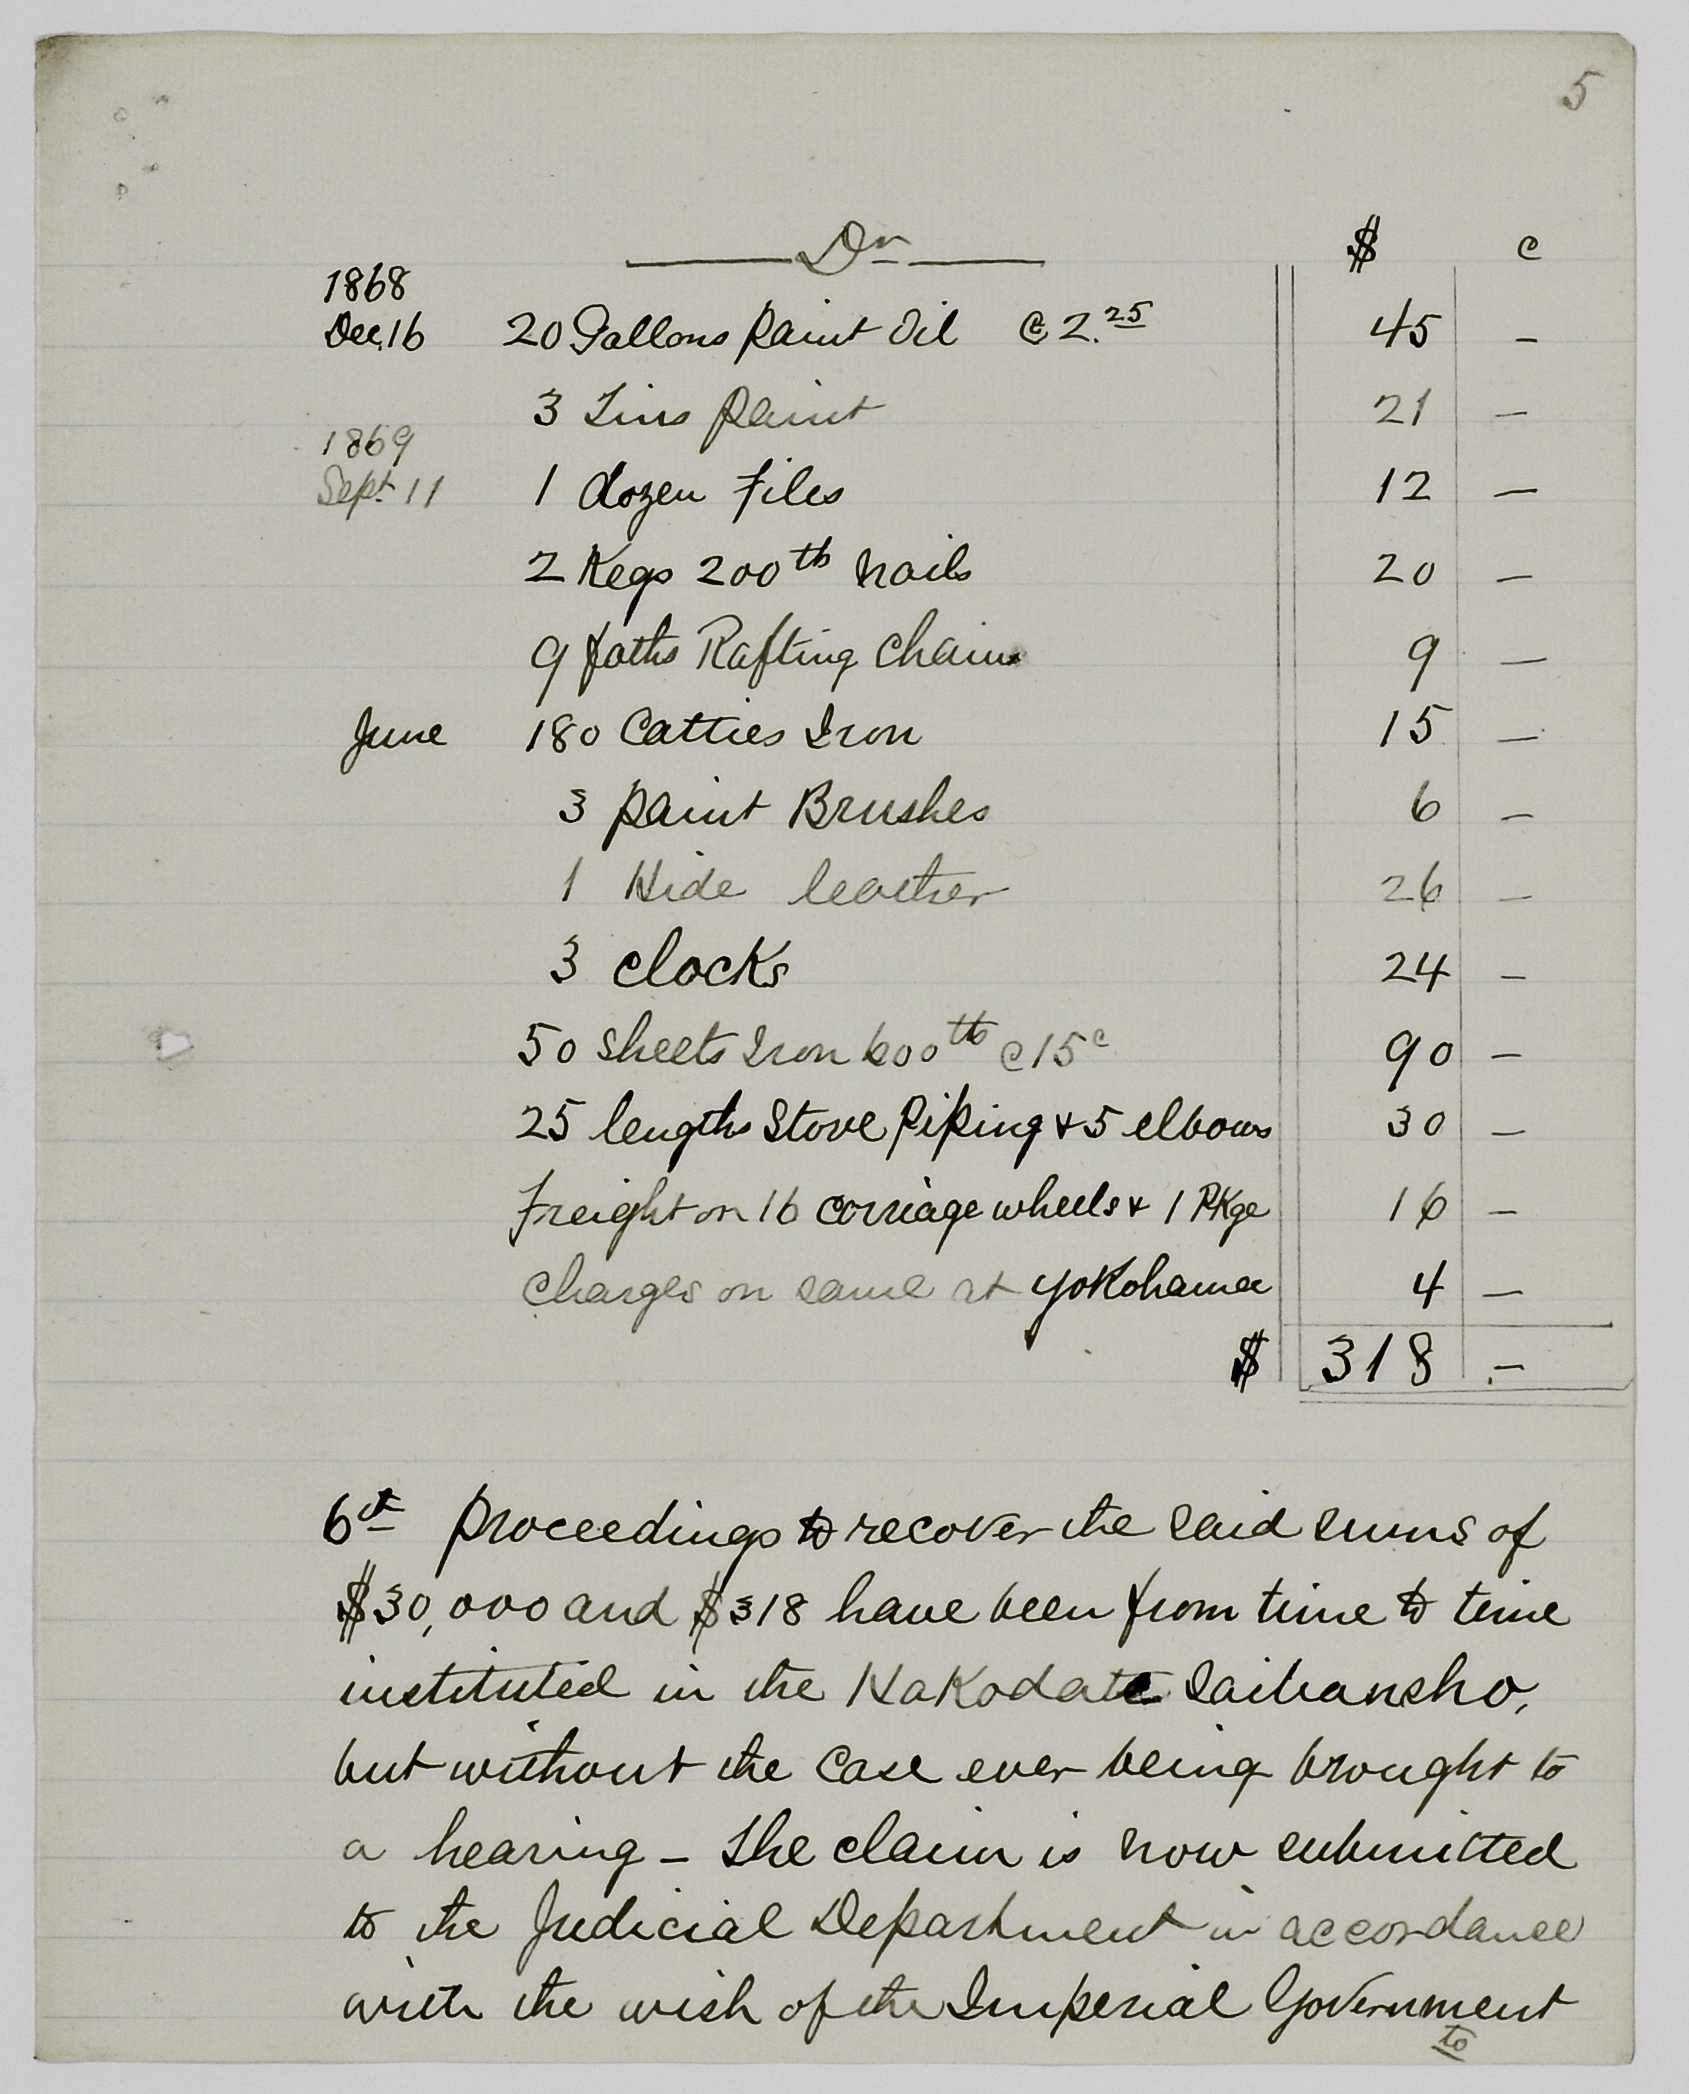 5
Dr $ c
1868
Dec. 16 20 Gallons Paint Oil @ 2.25 45 –
3 Tins Paint 21 –
1869
Sept. 11 1 dozen Files 12 –
2 Kegs 200 lb nails 20 –
9 faths Rafting Chain 9 –
June 180 Catties Iron 15 –
3 Paint Brushes 6 –
1 Hide leather 26 –
3 Clocks 24 –
50 Sheets Iron 600 lb @ 15c 90 –
25 lengths Stove Piping & 5 elbows 30 –
Freight on 16 carriage wheels & 1 Pkge 16 –
Charges on same at Yokohama 4 –
$ 318 –
6th Proceedings to recover the said sums of
$30,000 and $318 have been from time to time
instituted in the Hakodate Saibansho,
but without the case ever being brought to
a hearing – The claim is now submitted
to the Judicial Department in accordance
with the wish of the Imperial Government
to